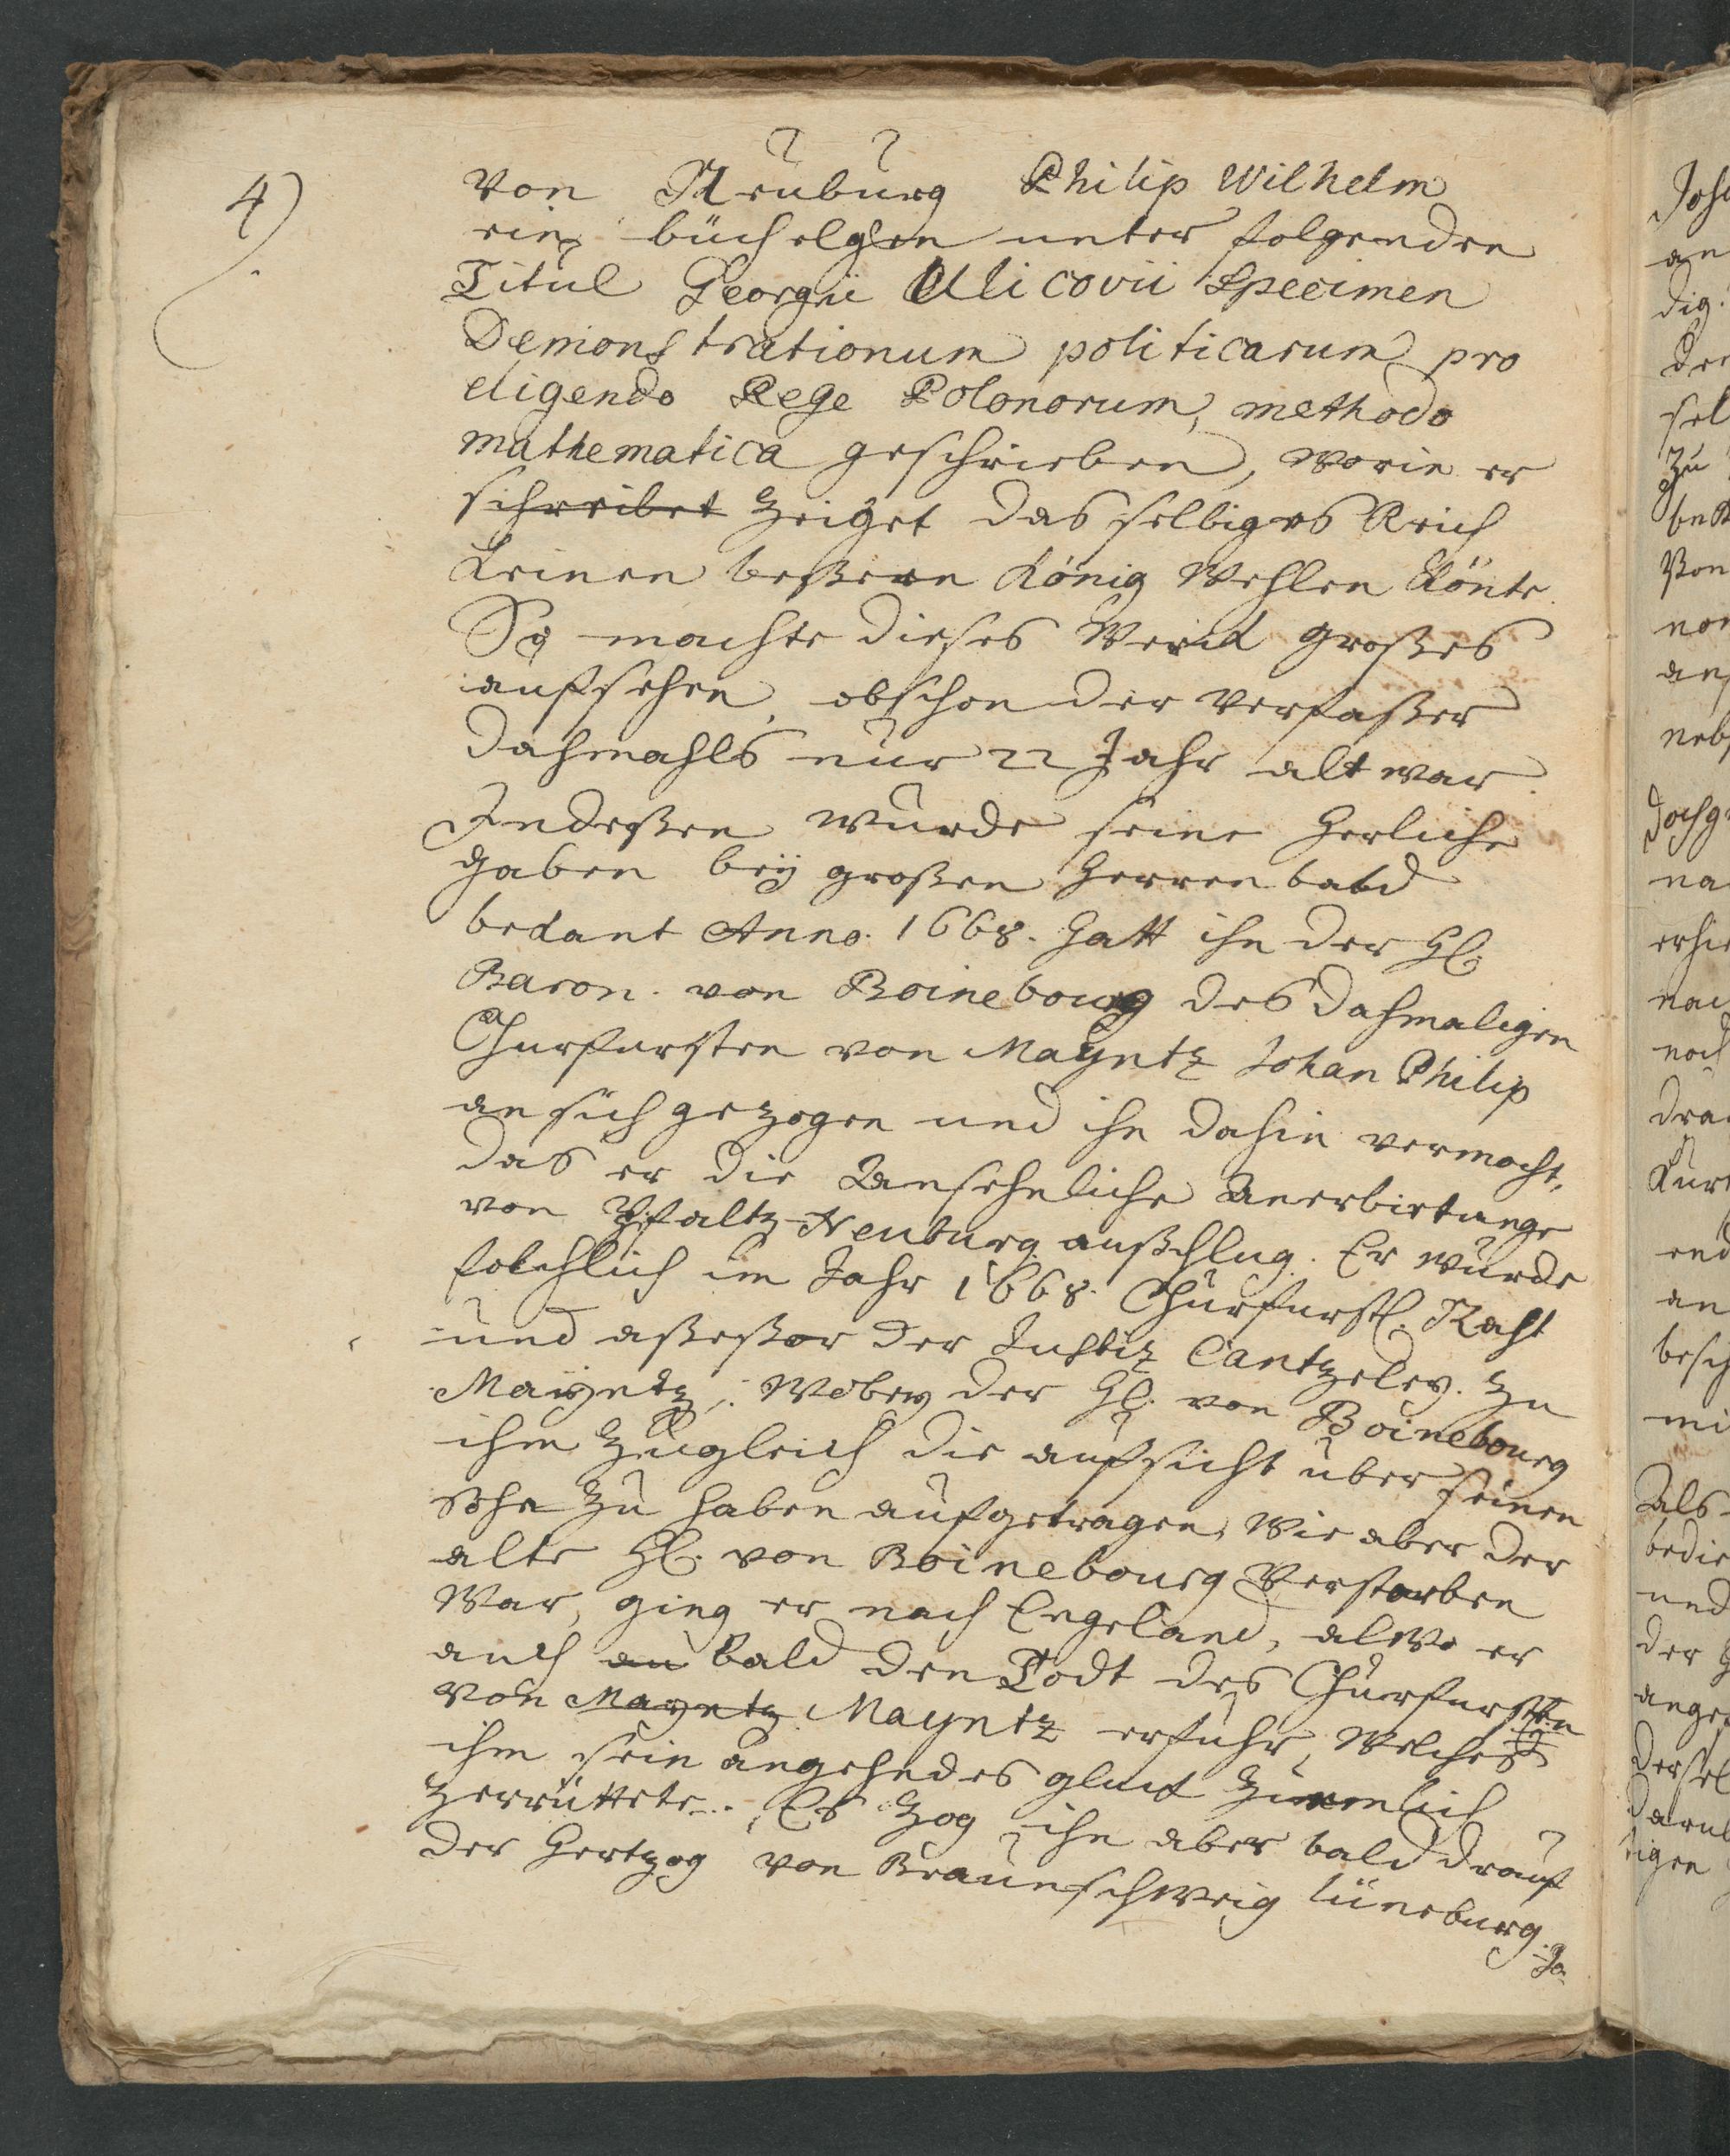 4)
von Neuburg Philip Wilhelm
ein büchelgen unter folgenden
Titul Georgii Ulicovii Specimen
Demonstrationum politicarum pro
eligendo Rege Polonorum, methodo
mathematica geschrieben, worin er
schreibet zeiget das selbiges Reich
keinen beßeren König wehlen könte.
So machte dieses Werck großes
aufsehen, obschon der Verfaßer
dahmahls nur 22 Jahr alt war.
Indeßen wurde seine herliche
gaben beÿ großen Herren bald
bekant Anno. 1668. hatt ihn der H.
Baron. von Boinebourg des dahmaligen
Churfursten von Mayntz Johan Philip
an sich gezogen und ihn dahin vermocht,
das er die Ansehnliche Anerbietunge
von Pfaltz-Neuburg außschlug. Er wurde
folchlich im Jahr 1668. Churfurstl. Raht
und aßeßor der Justiz Cantzeley. zu
Mayntz, wobey der H. von Boinebourg
ihm zugleich die aufsicht über seinen
Sohn zu haben aufgetragen, Wie aber der
alte H. von Boinebourg Verstorben
war, ging er nach Engeland, alwo er
auch an bald den Todt des Churfursten
von Mayntz Mayntz erfuhr, welches
ihm sein angehendes gluck zimmlich
zerrüttete. Es zog ihn aber bald drauf
der Hertzog von Braunschweig lüneburg.
Jo-
Joh
an
dig
der
sel
zu
von
non
neb
na
erhie
nach
noch
dra
Kur
end
an
besch
mi
Als
bedie
und
der
ange
dersel
darul
tigen